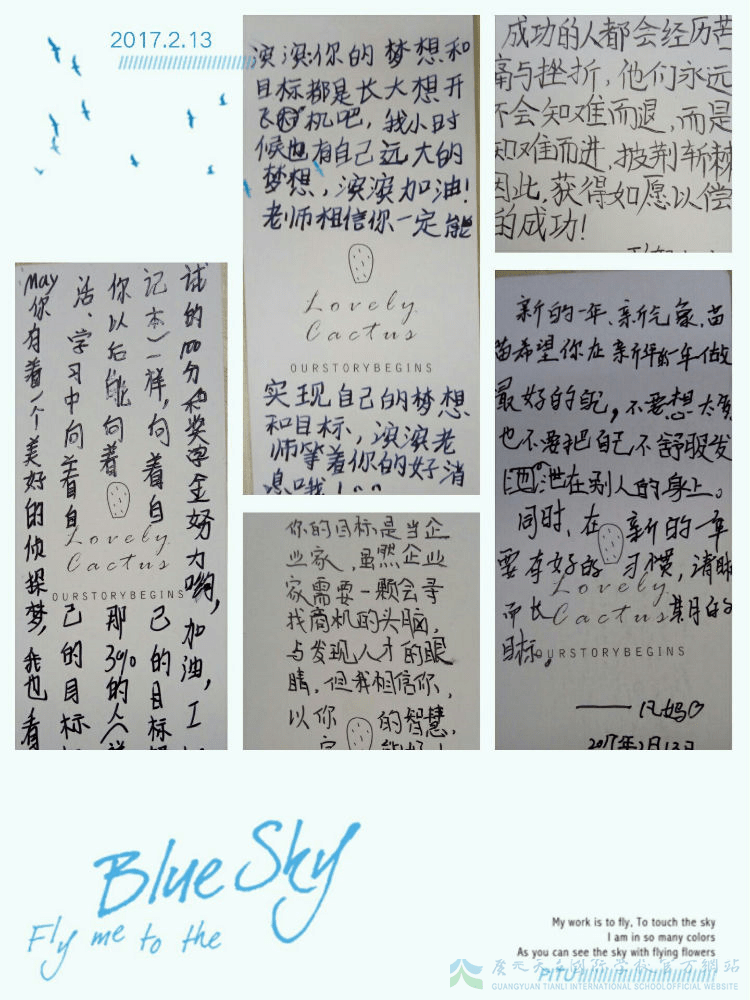 2017.2.13
滨滨:你的梦想和
目标都是长大想开
飞机吧,我小时
候也有自己远大的
梦想,滨滨加油!
老师相信你一定能
Lovely
Cactus
OURSTORYBEGINS
实现自己的梦想
和目标,滨滨老
师等着你的好消
息哦!
成功的人都会经历苦
痛与挫折,他们永远
不会知难而退,而是
知难而进,披荆斩棘
因此,获得如愿以偿
的成功!
试的100分和奖学金努力哟,加油,I
记本)一样,向着自己的目标
你以后能向着那3%的人(
活、学习中向着自己的目标
May你有着一个美好的侦探梦,我也看
Lovely
Cactus
OURSTORYBEGINS
你的目标是当企
业家,虽然企业
家需要一颗会寻
找商机的头脑,
与发现人才的眼
睛,但我相信你,
以你的智慧,
一定能
新的一年、新气象,苗
苗希望你在新的一年做
最好的自己,不要想太多
也不要把自己不舒服发
泄在别人的身上。
同时,在新的一年
要有好的习惯,清晰
而长
目标。
Lovely
Cactus
OURSTORYBEGINS
——凡妈♡
2017年2月13日
Blue Sky
Fly me to the
My work is to fly, To touch the sky
I am in so many colors
As you can see the sky with flying flowers
PITU
廣元天立國際學校官方網站
GUANGYUAN TIANLI INTERNATIONAL SCHOOLOFFICIAL WEBSITE